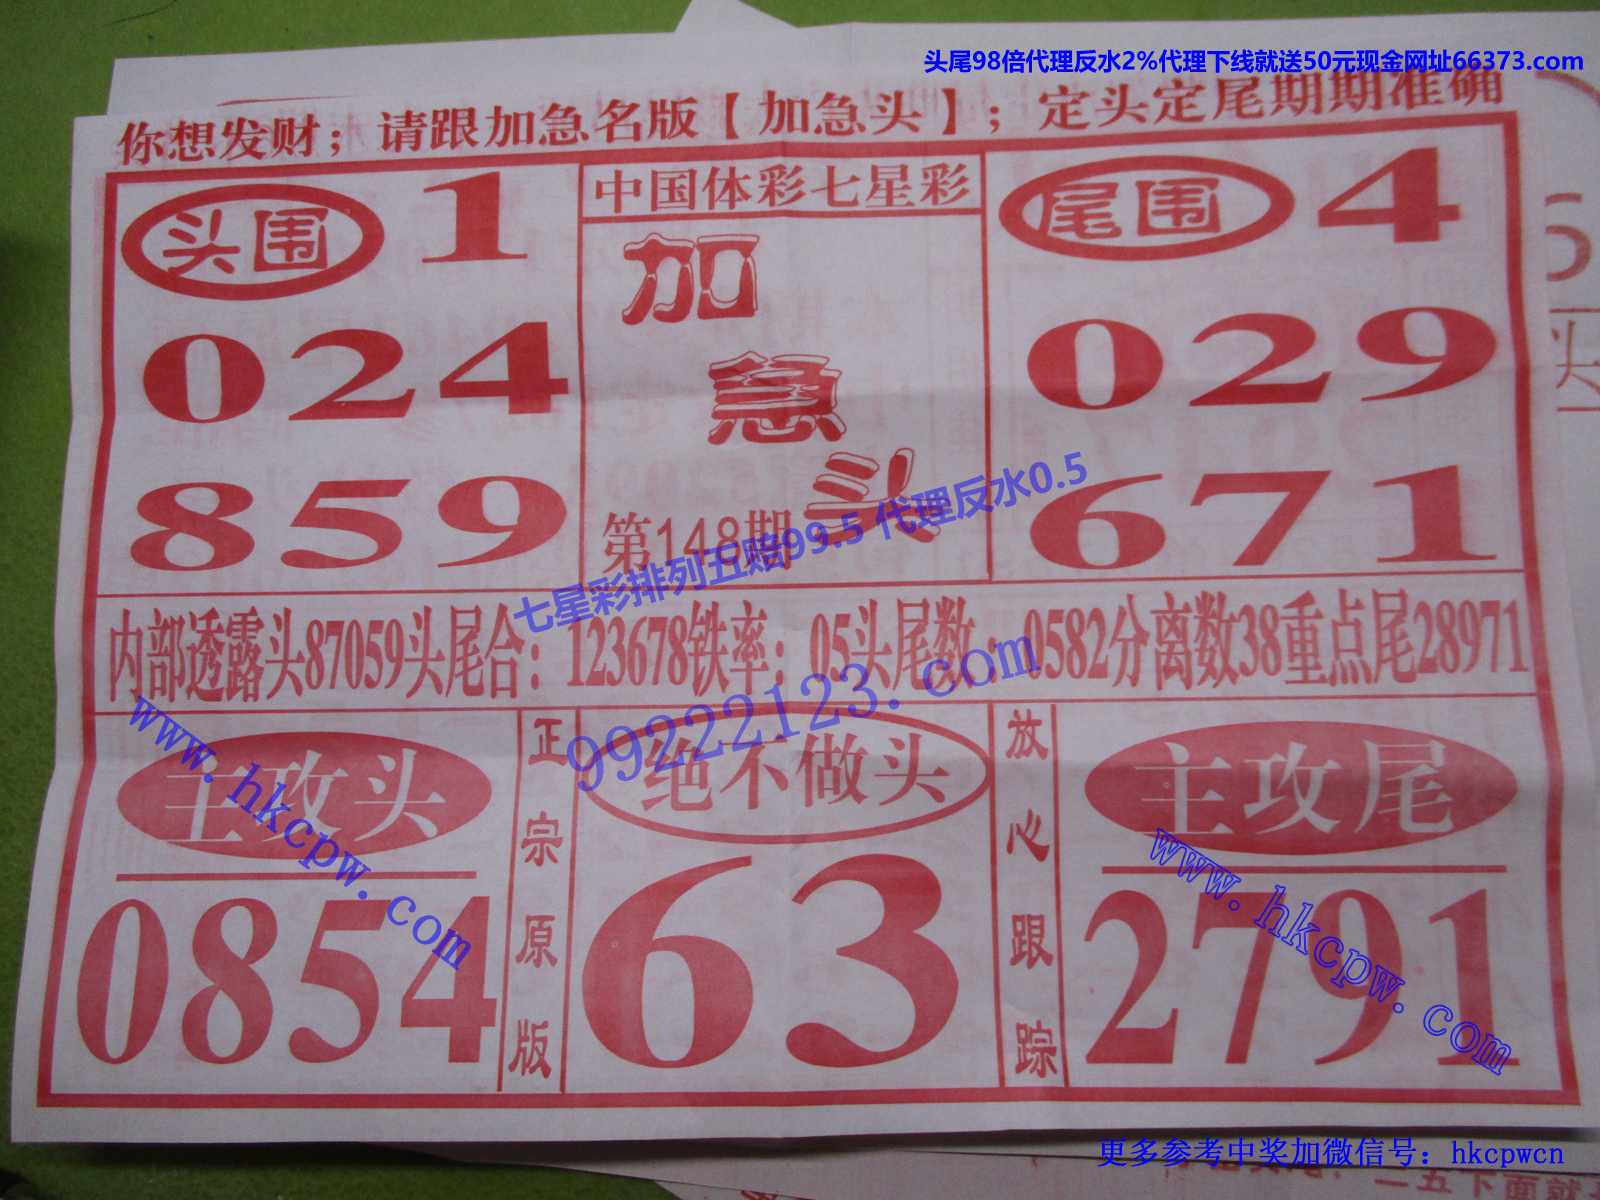 头尾98倍代理反水2%代理下线就送50元现金网址66373.com
你想发财；请跟加急名版【加急头】；定头定尾期期准确
头围 1
024
859
中国体彩七星彩
加
急
头
第148期
尾围 4
029
671
七星彩排列五赔99.5 代理反水0.5
内部透露头87059头尾合：123678铁率：05头尾数：0582分离数38重点尾28971
99222123.com
www.hkcpw.com
主攻头
0854
正宗原版
绝不做头
63
放心跟踪
主攻尾
2791
www.hkcpw.com
更多参考中奖加微信号：hkcpwcn